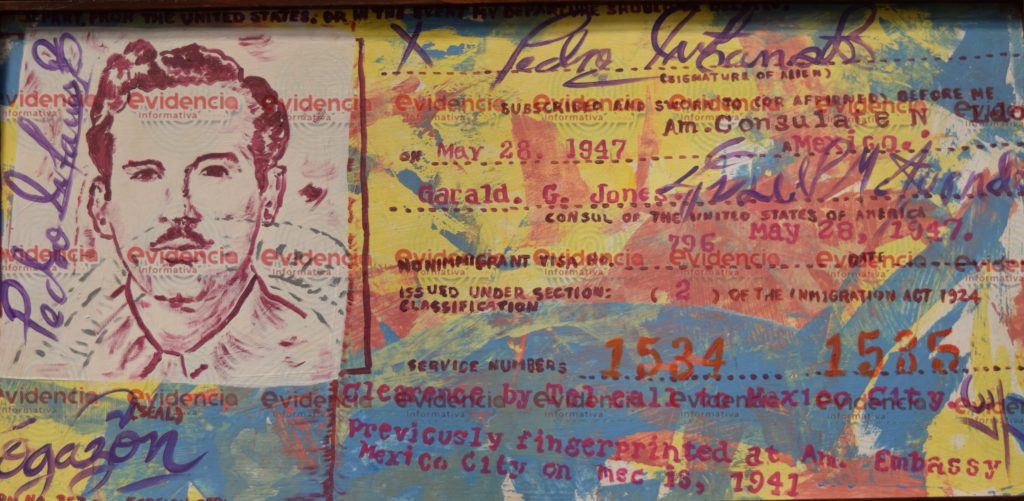 DEPART. FROM THE UNITED STATES. OR IN THE EVENT MY DEPARTURE SHOULD BE
X Pedro
(SIGNATURE OF ALIEN)
Pedro
SUBSCRIBED AND SWORN TO (OR AFFIRMED) BEFORE ME
Am. Consulate N Ldo
ON May 28, 1947 A Mexico.
Garald. G. Jones.
CONSUL OF THE UNITED STATES OF AMERICA
796 May 28, 1947.
NONIMMIGRANT VISA NO. DATE
ISSUED UNDER SECTION: ( 2 ) OF THE INMIGRATION ACT 1924
CLASSIFICATION
SERVICE NUMBERS 1534 1535
Clearance by Tel call to Mexico City.
(SEAL)
ógazón
Previously fingerprinted at Am. Embassy
Mexico City on mec 18, 1941
evidencia
informativa